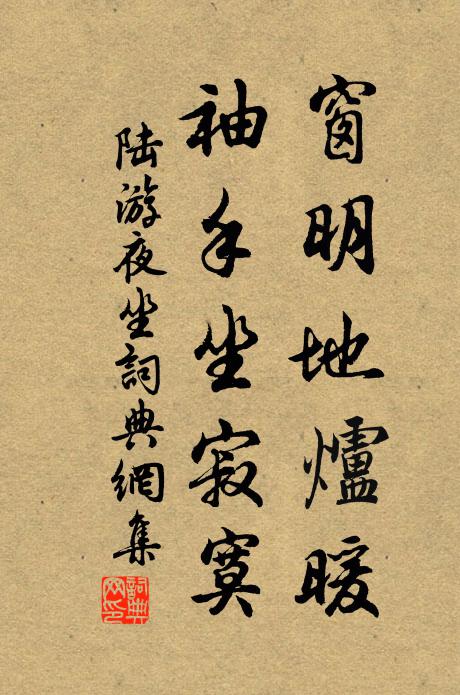 窗明地爐暖
袖手坐寂寞
陸游夜坐詞典網集
詞典网印